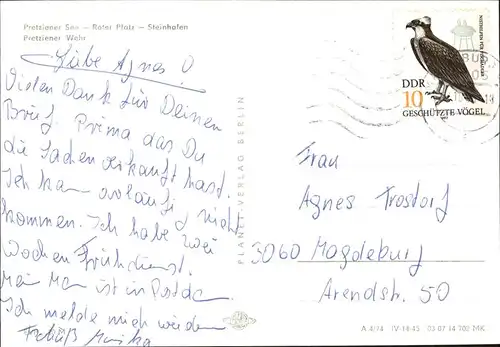 Pretziener See — Roter Platz — Steinhafen
Pretziener Wehr
Liebe Agnes!
Vielen Dank für Deinen
Brief. Prima das Du
die Sachen verkauft hast.
Ich kann vorläufig nicht
kommen. Ich habe zwei
Wochen Frühdienst.
Mein Mann ist in Potsdam
Ich melde mich wieder
Gruß Monika
PLANET-VERLAG BERLIN
DDR
10
GESCHÜTZTE VÖGEL
Frau
Agnes Trostorf
3060 Magdeburg
Arendstr. 50
A 4/74 IV-14-45 03 07 14 700 MK